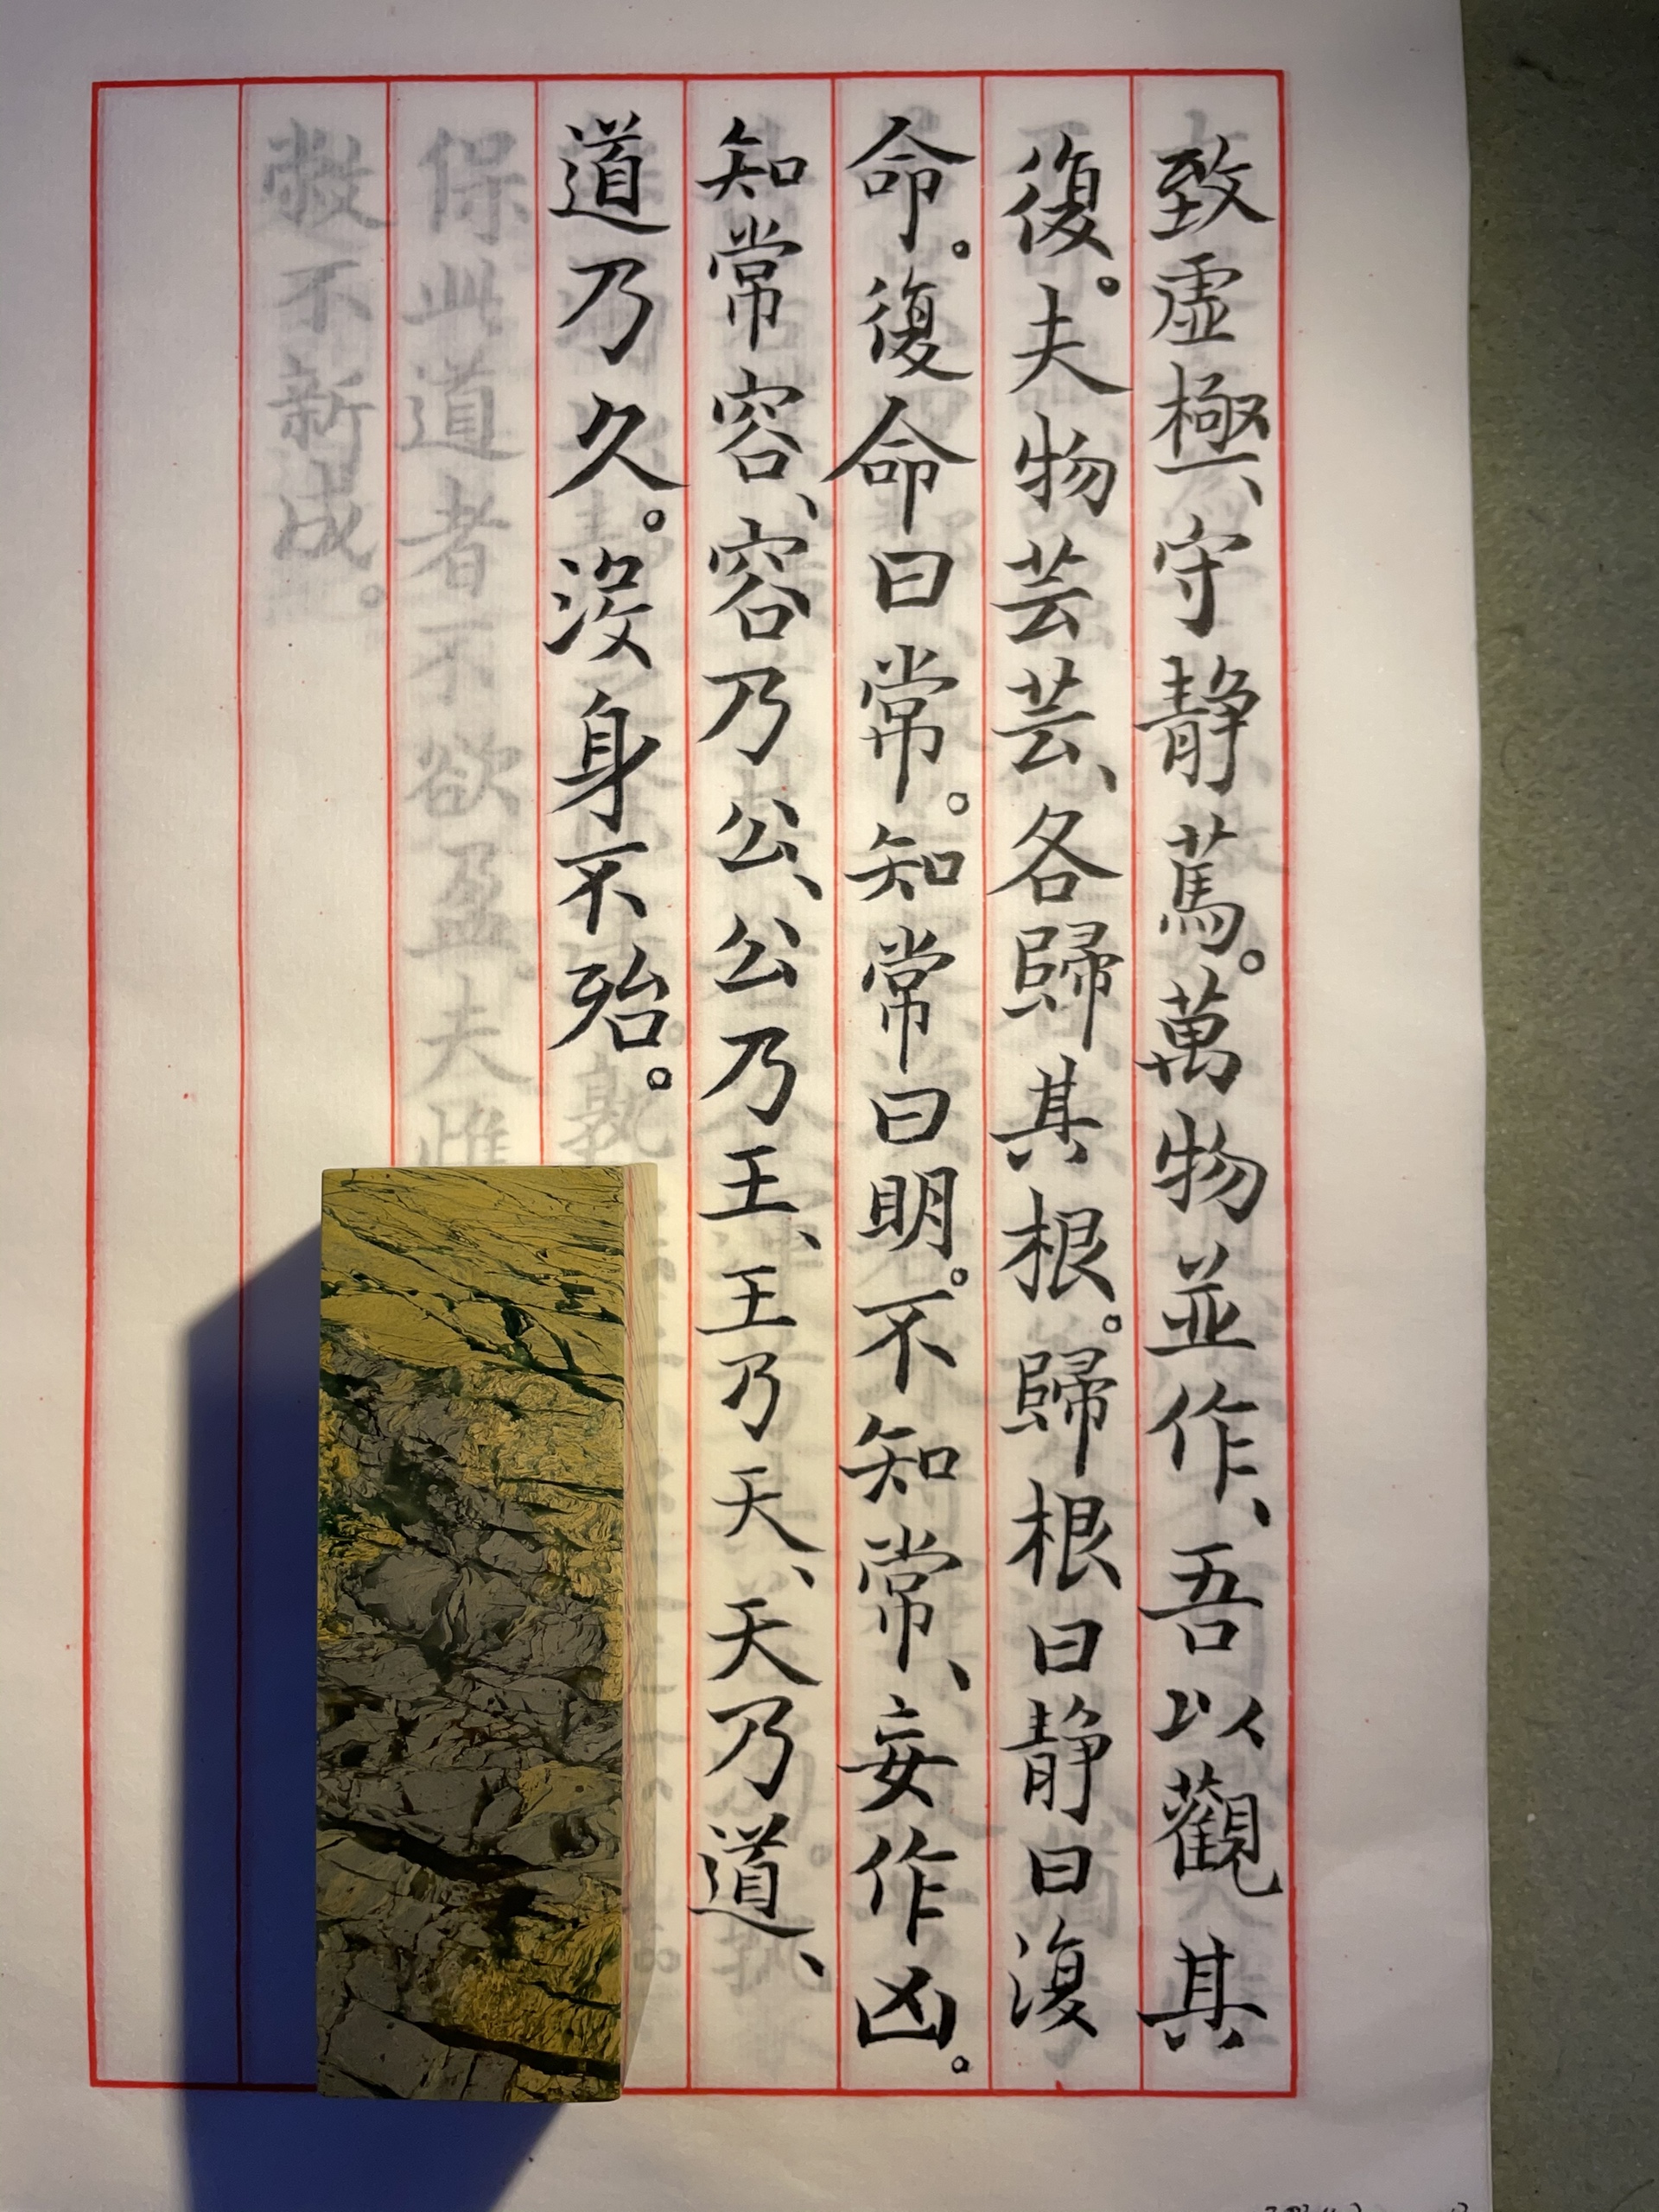 致虛極、守靜篤。萬物並作、吾以觀其
復。夫物芸芸、各歸其根。歸根曰靜曰復
命。復命曰常。知常曰明。不知常、妄作凶。
知常容、容乃公、公乃王、王乃天、天乃道、
道乃久。沒身不殆。
保此道者不欲盈夫惟
敝不新成。